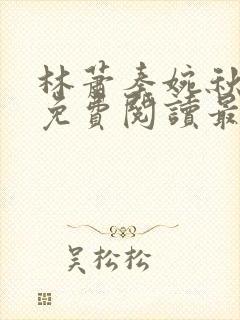 林蕭秦婉秋
免費閱讀最
吳松松